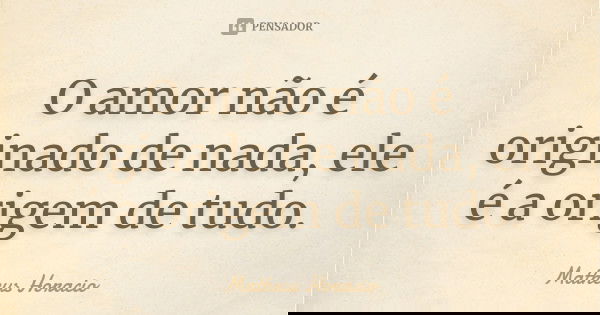 PENSADOR
O amor não é
originado de nada, ele
é a origem de tudo.
Matheus Horacio